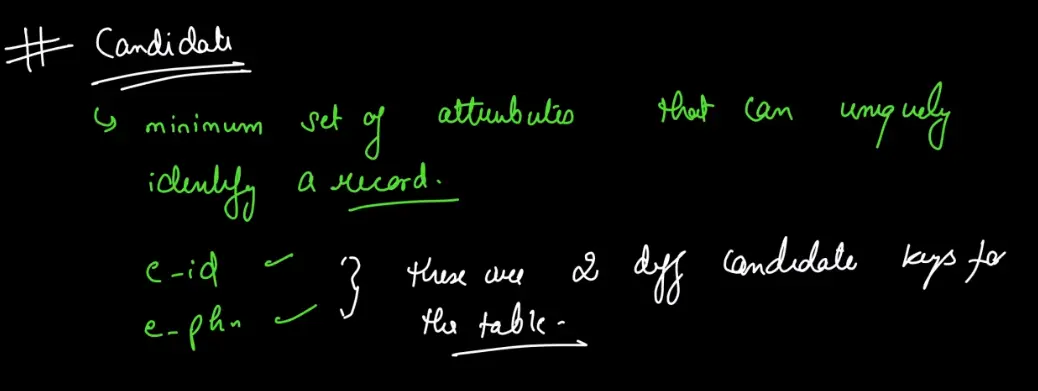 # Candidate
↳ minimum set of attributes that can uniquely
identify a record.
e-id ✓ } these are 2 diff candidate keys for
e-phn ✓ the table.